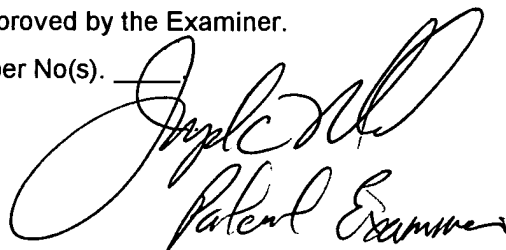 proved by the Examiner.
er No(s). ____.
Patent Examiner